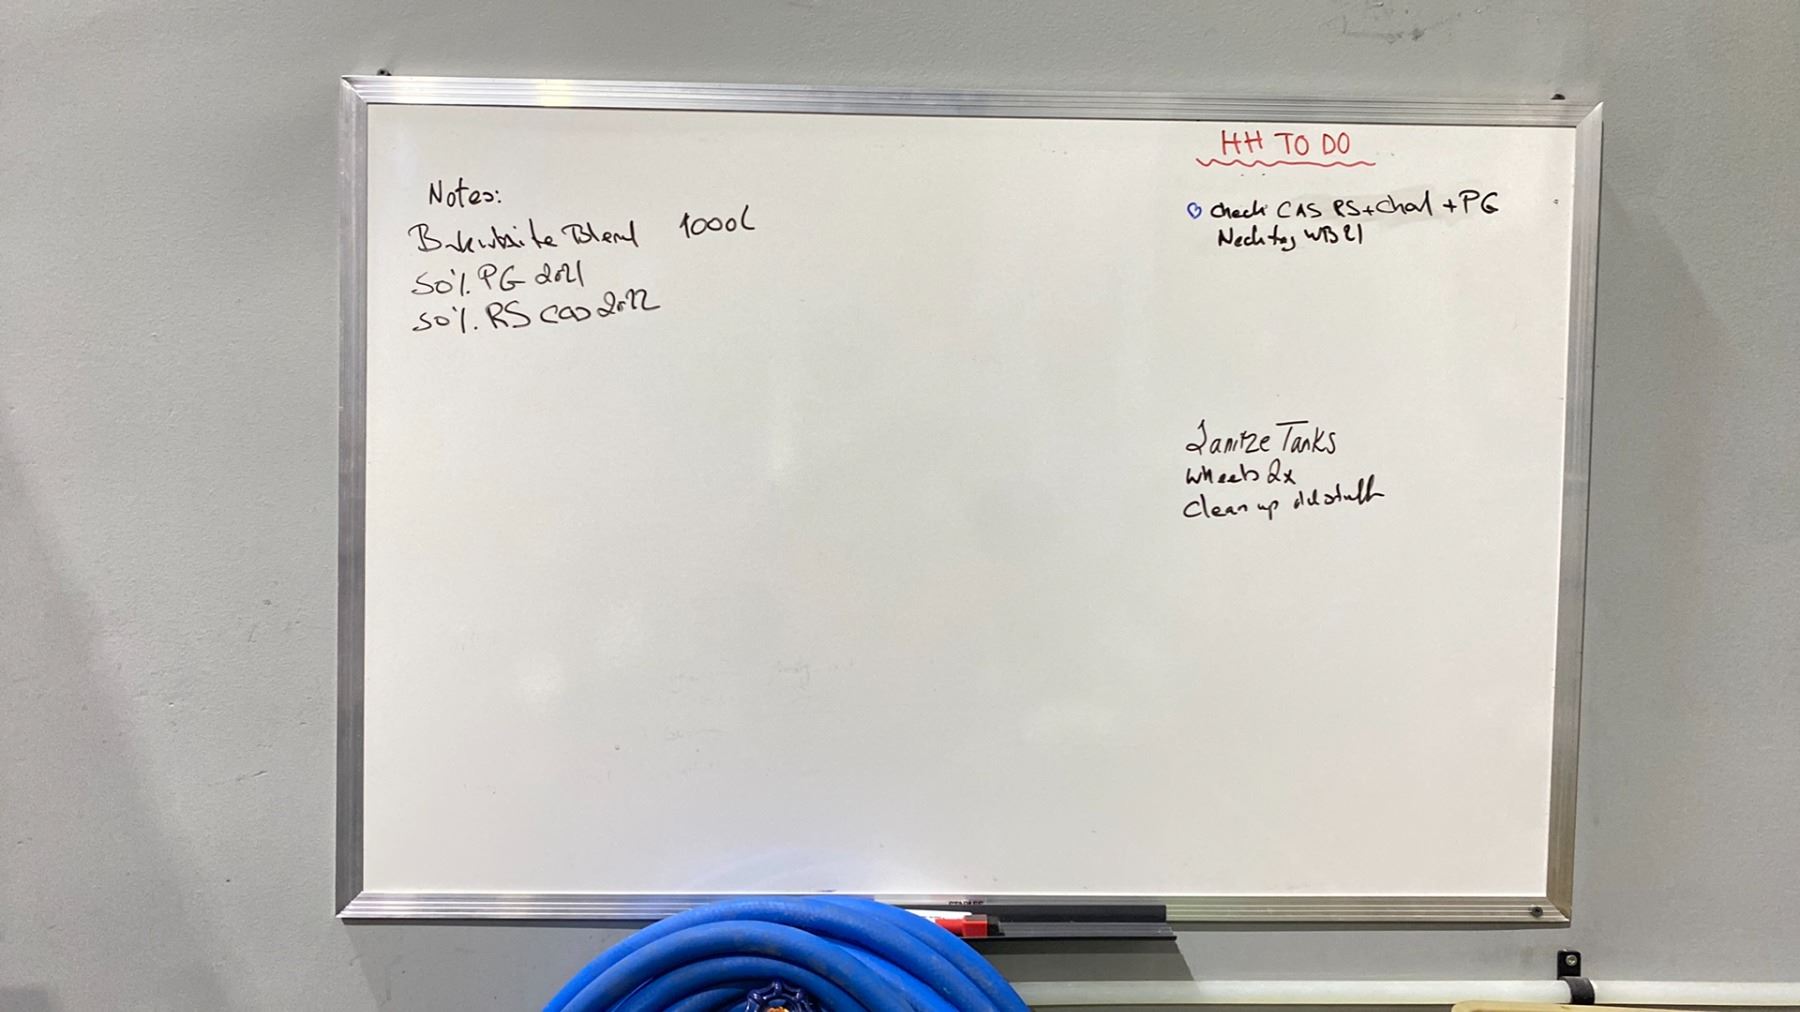 Notes:
Blend 1000L
50% PG 2021
50% RS Cas 2022
HH TO DO
Check CAS RS + Chad + PG
WB 21
Sanitze Tanks
wheels 2x
Clean up old stuff